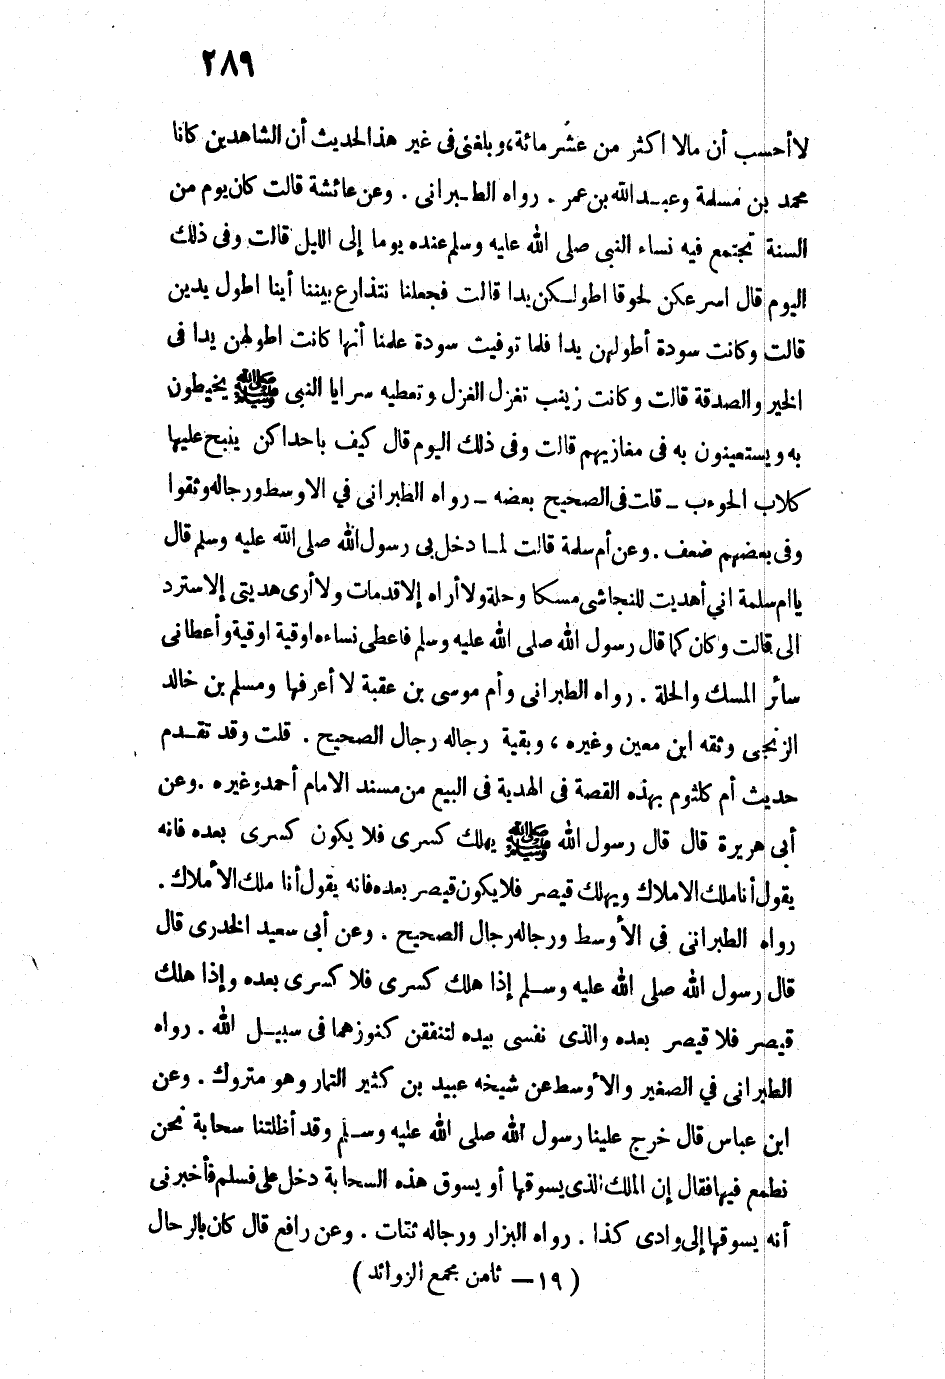 ٢٨٩
لا أحسب أن مالا اكثر من عشر مائة، وبلغنى فى غير هذا الحديث أن الشاهدين كانا
محمد بن مسلمة وعبد الله بن عمر . رواه الطبرانى . وعن عائشة قالت كان يوم من
السنة تجتمع فيه نساء النبى صلى الله عليه وسلم عنده يوما إلى الليل قالت وفى ذلك
اليوم قال اسرعكن لحوقا اطولكن يدا قالت فجعلنا نتذارع بيننا أينا اطول يدين
قالت وكانت سودة أطولهن يدا فلما توفيت سودة علمنا أنها كانت اطولهن يدا فى
الخير والصدقة قالت وكانت زينب تغزل الغزل وتعطيه سرايا النبى ﷺ يخيطون
به ويستعينون به فى مغازيهم قالت وفى ذلك اليوم قال كيف باحداكن ينبح عليها
كلاب الحوءب ـ قلت فى الصحيح بعضه ـ رواه الطبرانى في الاوسط ورجاله وثقوا
وفى بعضهم ضعف . وعن أم سلمة قالت لما دخل بى رسول الله صلى الله عليه وسلم قال
يا ام سلمة اني أهديت للنجاشى مسكا وحلة ولا أراه إلا قدمات ولا أرى هديتى إلا سترد
الى قالت وكان كما قال رسول الله صلى الله عليه وسلم فاعطى نساءه اوقية اوقية وأعطانى
سائر المسك والحلة . رواه الطبرانى وأم موسى بن عقبة لا أعرفها ومسلم بن خالد
الزنجى وثقه ابن معين وغيره ، وبقية رجاله رجال الصحيح . قلت وقد تقدم
حديث أم كلثوم بهذه القصة فى الهدية فى البيع من مسند الامام أحمد وغيره . وعن
أبى هريرة قال قال رسول الله ﷺ يهلك كسرى فلا يكون كسرى بعده فانه
يقول أنا ملك الاملاك ويهلك قيصر فلا يكون قيصر بعده فانه يقول أنا ملك الأملاك .
رواه الطبرانى في الأوسط ورجاله رجال الصحيح . وعن أبى سعيد الخدرى قال
قال رسول الله صلى الله عليه وسلم إذا هلك كسرى فلا كسرى بعده وإذا هلك
قيصر فلا قيصر بعده والذى نفسى بيده لتنفقن كنوزهما فى سبيل الله . رواه
الطبرانى في الصغير والأوسط عن شيخه عبيد بن كثير التمار وهو متروك . وعن
ابن عباس قال خرج علينا رسول الله صلى الله عليه وسلم وقد أظلتنا سحابة نحن
نطمع فيها فقال إن الملك الذى يسوقها أو يسوق هذه السحابة دخل على فسلم فأخبرنى
أنه يسوقها إلى وادى كذا . رواه البزار ورجاله ثقات . وعن رافع قال كان بالرحال
( ١٩ ـ ثامن مجمع الزوائد )